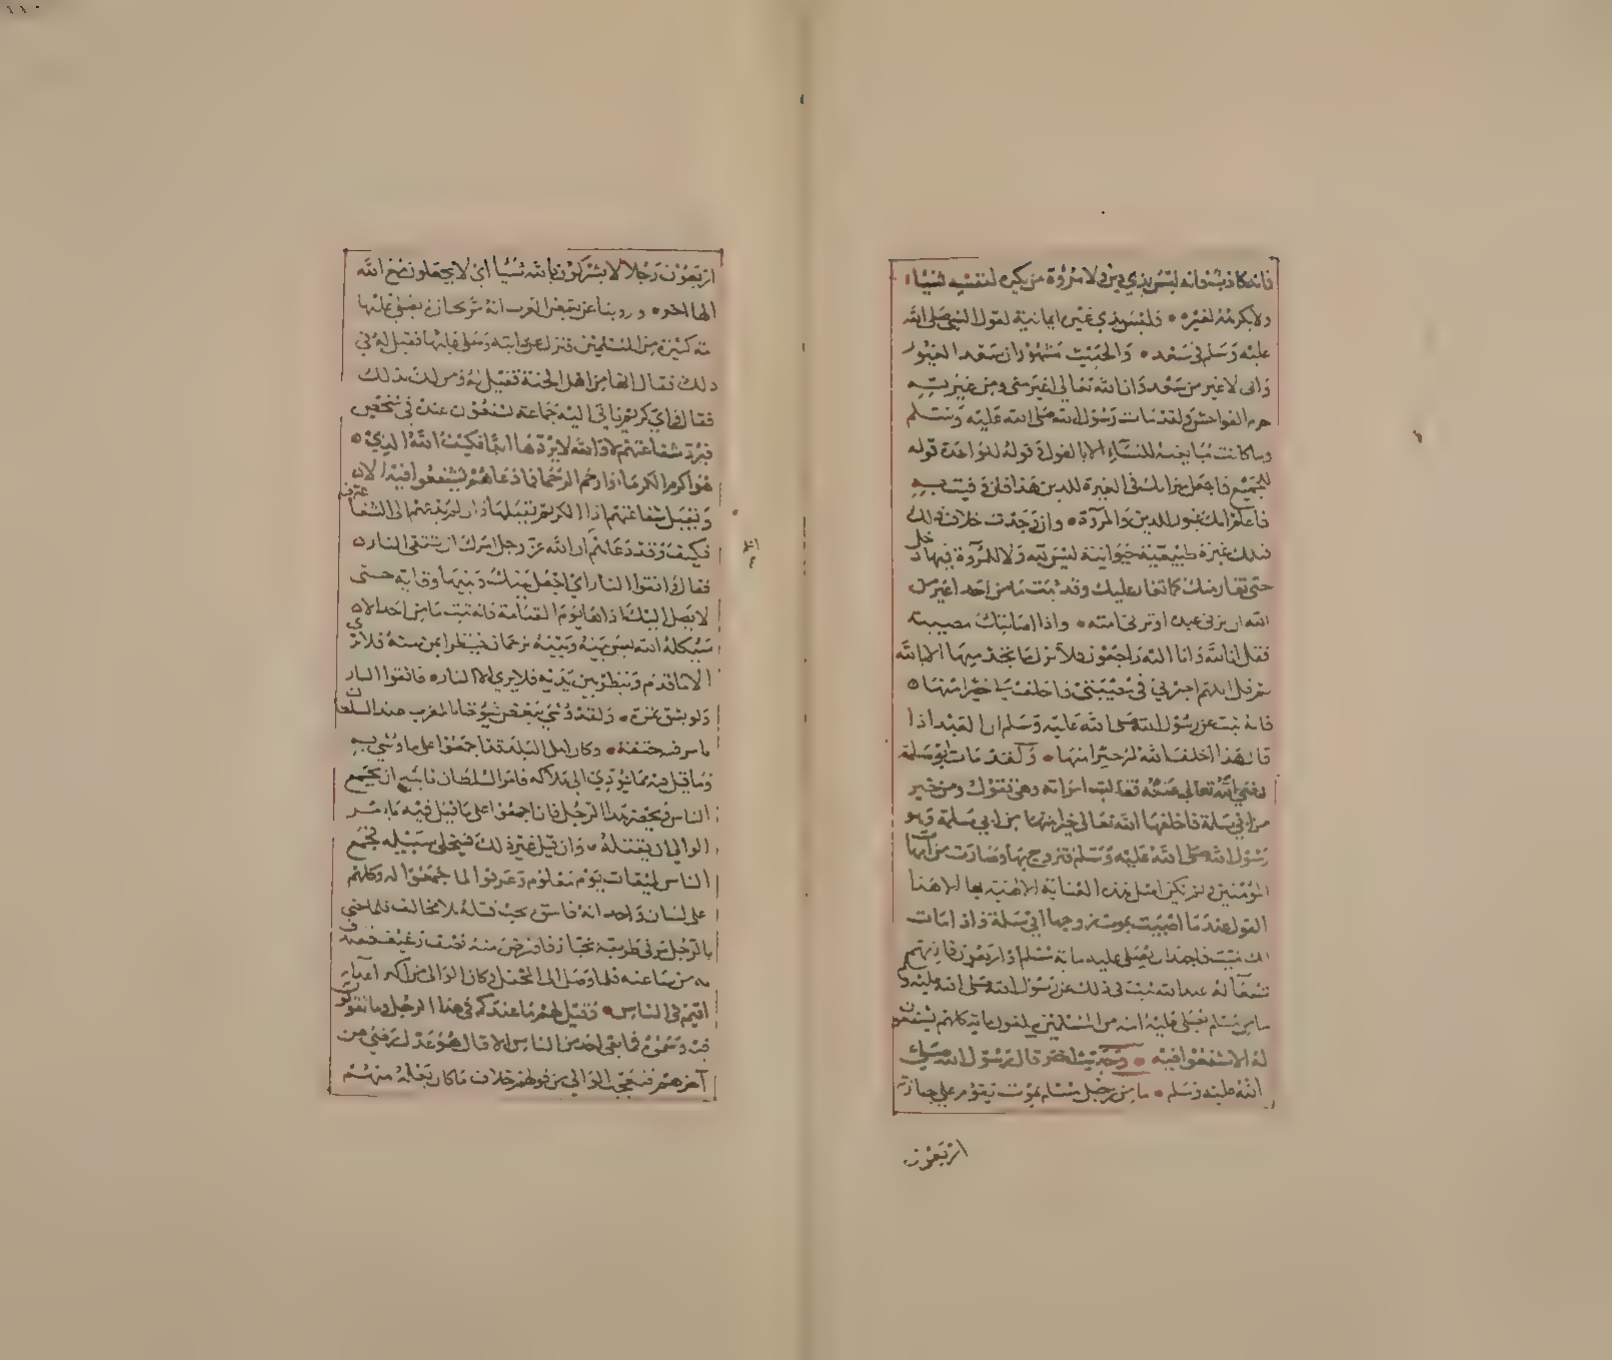 فانه كاذب فانه ليس بذي دين ولا مروة من يكره لنفسه شيئا
ولا يكرهه لغيره وليس بذي غيرة ايمانية لقول النبي صلى الله
عليه وسلم في سعد والحديث مشهور ان سعدا لغيور
واني لاغير من سعد وان الله تعالى اغير مني ومن غيرته
حرم الفواحش ولقد مات رسول الله صلى الله عليه وسلم
وما كانت مبايعته للنساء الا بالقول قوله للواحدة قوله
للجميع فاجعل ميزانك في الغيرة للدين هذا فان وفيت به
فاعلم انك غيور للدين والمروة وان وجدت خلاف ذلك
فتلك غيرة طبيعية حيوانية ليس لله ولا للمروة فيها دخل
حتى تغار منك كما تغار عليك وقد ثبت ما من احد اغير من
الله ان يزني عبده او تزني امته واذا اصابتك مصيبة
فقل انا لله وانا اليه راجعون ولا تنزل ما تجد منها الا بالله
ثم قل اللهم اجرني في مصيبتي واخلف لي خيرا منها
فانه ثبت عن رسول الله صلى الله عليه وسلم ان العبد اذا
قال هذا اخلف الله له خيرا منها ولقد مات ابو سلمة
رضي الله تعالى عنه فقالت امراته وهي تقول ومن خير
من ابي سلمة فاخلفها الله تعالى خيرا منها من ابي سلمة وهو
رسول الله صلى الله عليه وسلم فتزوج بها وصارت من امهات
المؤمنين ولم تكن اهل هذه العناية الالهية بها الا هذا
القول عندما اصيبت بموت زوجها ابي سلمة واذا مات
لك ميت فاجهد ان يصلي عليه مائة مسلم او اربعون فانهم
شفعاء له عند الله ثبت في ذلك عن رسول الله صلى الله عليه وسلم
ما من مسلم يصلي عليه امة من المسلمين يبلغون مائة كلهم يشفعون
له الا شفعوا فيه وحديث اخر قال رسول الله صلى
الله عليه وسلم ما من رجل مسلم يموت فيقوم على جنازته
اربعون
اربعون رجلا لا يشركون بالله شيئا اي لا يجعلون مع الله
الها اخر وروينا عن بعض العرب انه مر بجنازة يصلي عليها
امة كثيرة من المسلمين فنزل عن دابته وصلى عليها فقيل له في
ذلك فقال انها من اهل الجنة فقيل له ومن لك بذلك
فقال واي كريم ياتي اليه جماعة يشفعون عنده في شخص
فيرد شفاعتهم لا والله لا يردها ابدا فكيف الله الذي
هو اكرم الكرماء وارحم الرحماء فما دعاهم ليشفعوا فيه الا
ويقبل شفاعتهم اذ الكريم يقبلها وان لم يدعهم الى الشفاعة فيه
فكيف وقد دعاهم ان الله عز وجل امرك ان تتقي النار
فقال واتقوا النار اي اجعل بينك وبينها وقاية حتى
لا يصل اليك اذاها يوم القيامة فانه ثبت ما من احد الا
سيكلمه الله ليس بينه وبينه ترجمان فينظر ايمن منه فلا يرى
الا ما قدم وينظر بين يديه فلا يرى الا النار فاتقوا النار
ولو بشق تمرة ولقد وشي ببعض شيوخنا بالمغرب عند السلطان
بامر فيه حتفه وكان اهل البلد قد اجمعوا على ما وشي به
وما قيل فيه مما يؤدي الى هلاكه فامر السلطان نائبه ان يجمع
الناس ويحضر هذا الرجل فان اجمعوا على ما قيل فيه يامر
الوالي ان يقتله وان قيل غير ذلك فيخلي سبيله فجمع
الناس لميقات يوم معلوم وعرفوا لما جمعوا له وكلهم
على لسان واحد انه فاسق يجب قتله بلا مخالف فلما جيء
بالرجل مر في طريقه بخباز فاقترض منه نصف رغيف فتصدق
به من ساعته فلما وصل الى المحفل وكان الوالي من اكبر اعدائه
اقيم في الناس وقيل لهم ما عندكم في هذا الرجل وما تقولون
فيه وسموه فما بقي احد من الناس الا قال هو عدل رضي عن
اخرهم فتعجب الوالي من قولهم خلاف ما كان يعلمه منهم